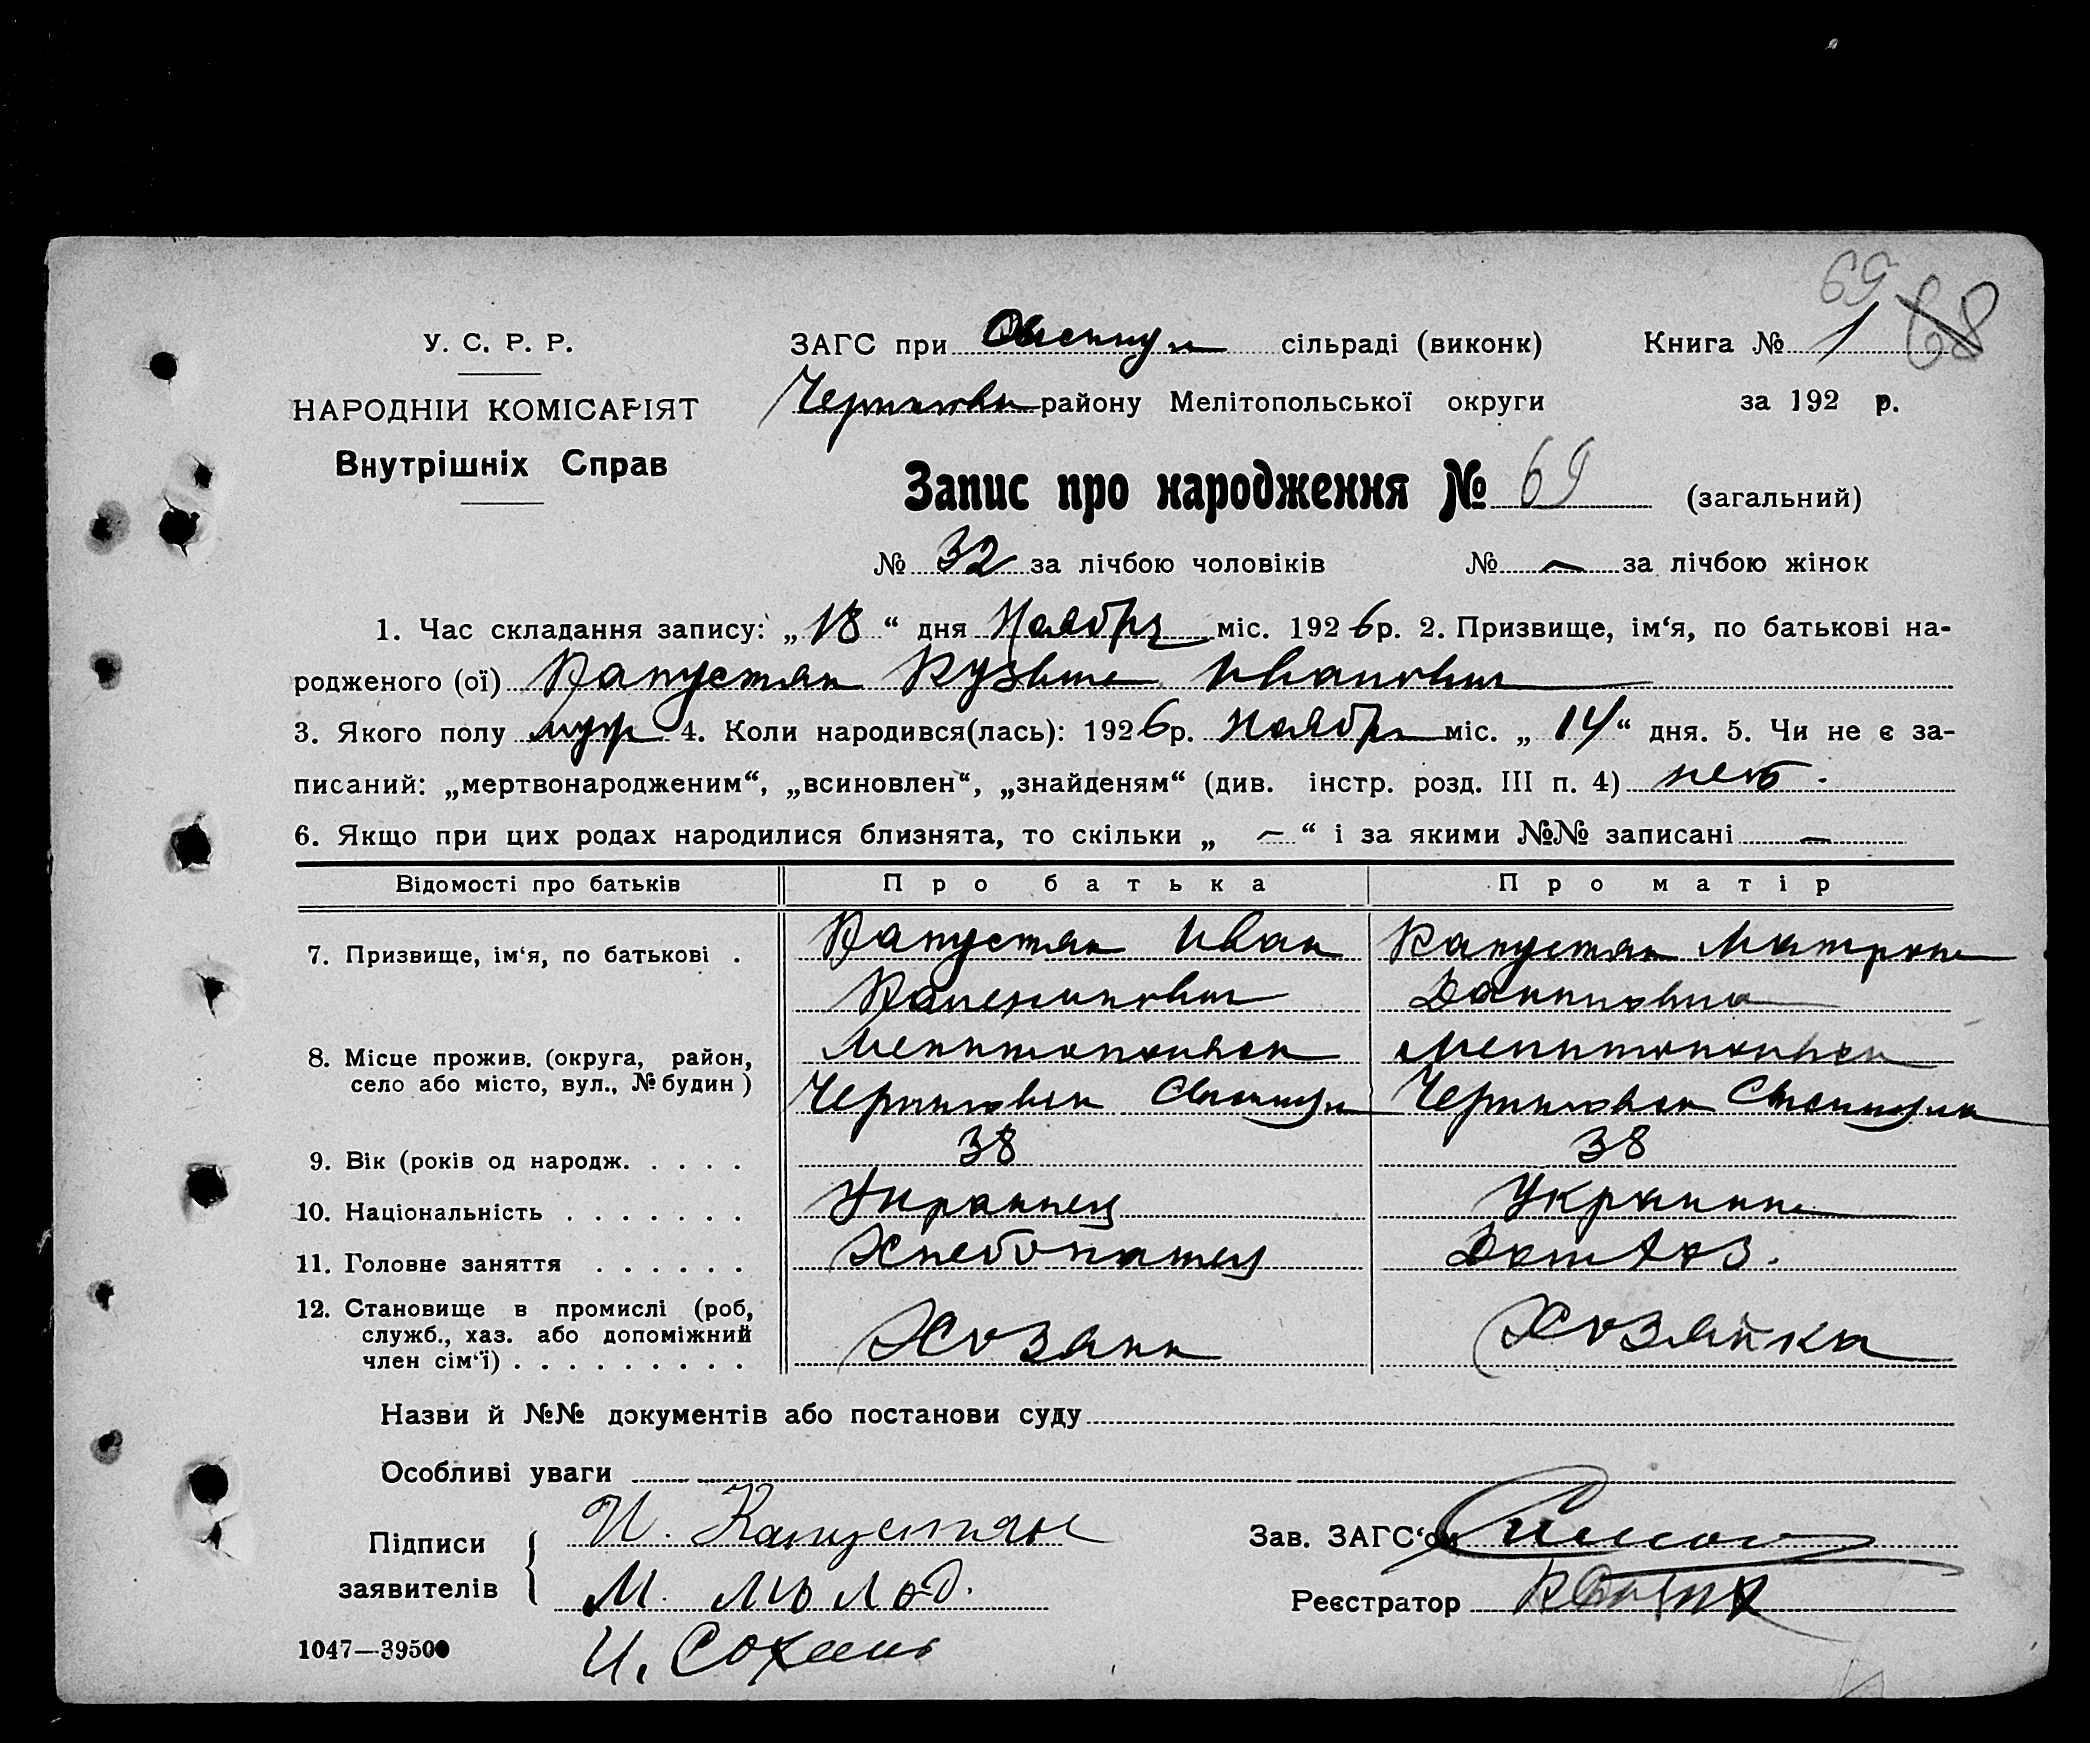 69
68
У. С. Р. Р.
ЗАГС при сільраді (виконк) Книга № 1
НАРОДНІЙ КОМІСАРІЯТ
Черниговск району Мелітопольської округи за 192 р.
Внутрішніх Справ
Запис про народження № 69 (загальний)
№ 32 за лічбою чоловіків № — за лічбою жінок
1. Час складання запису: „18“ дня Ноября міс. 1926 р. 2. Призвище, ім‘я, по батькові на-
родженого (ої) Капустян Кузьма Иванович
3. Якого полу муж 4. Коли народився(лась): 1926 р. Ноября міс. „14“ дня. 5. Чи не є за-
писаний: „мертвонародженим“, „всиновлен“, „знайденям“ (див. інстр. розд. III п. 4) нет.
6. Якщо при цих родах народилися близнята, то скільки „ — “ і за якими №№ записані —
Відомості про батьків Про батька Про матір
7. Призвище, ім‘я, по батькові . Капустян Иван Капустян Матрона
Даниловна
8. Місце прожив. (округа, район, Мелитопольск Мелитопольск
село або місто, вул., № будин ) Черниговск Черниговск
9. Вік (років од народж. . . . . 38 38
10. Національність . . . . . . . Украинец Украинка
11. Головне заняття . . . . . . Хлебопашец Дом хоз.
12. Становище в промислі (роб,
служб., хаз. або допоміжний Хозяин Хозяйка
член сім‘ї) . . . . . . . . .
Назви й №№ документів або постанови суду
Особливі уваги
Підписи И. Капустян Зав. ЗАГС‘ом
заявителів М. Реєстратор
1047—39500 И.